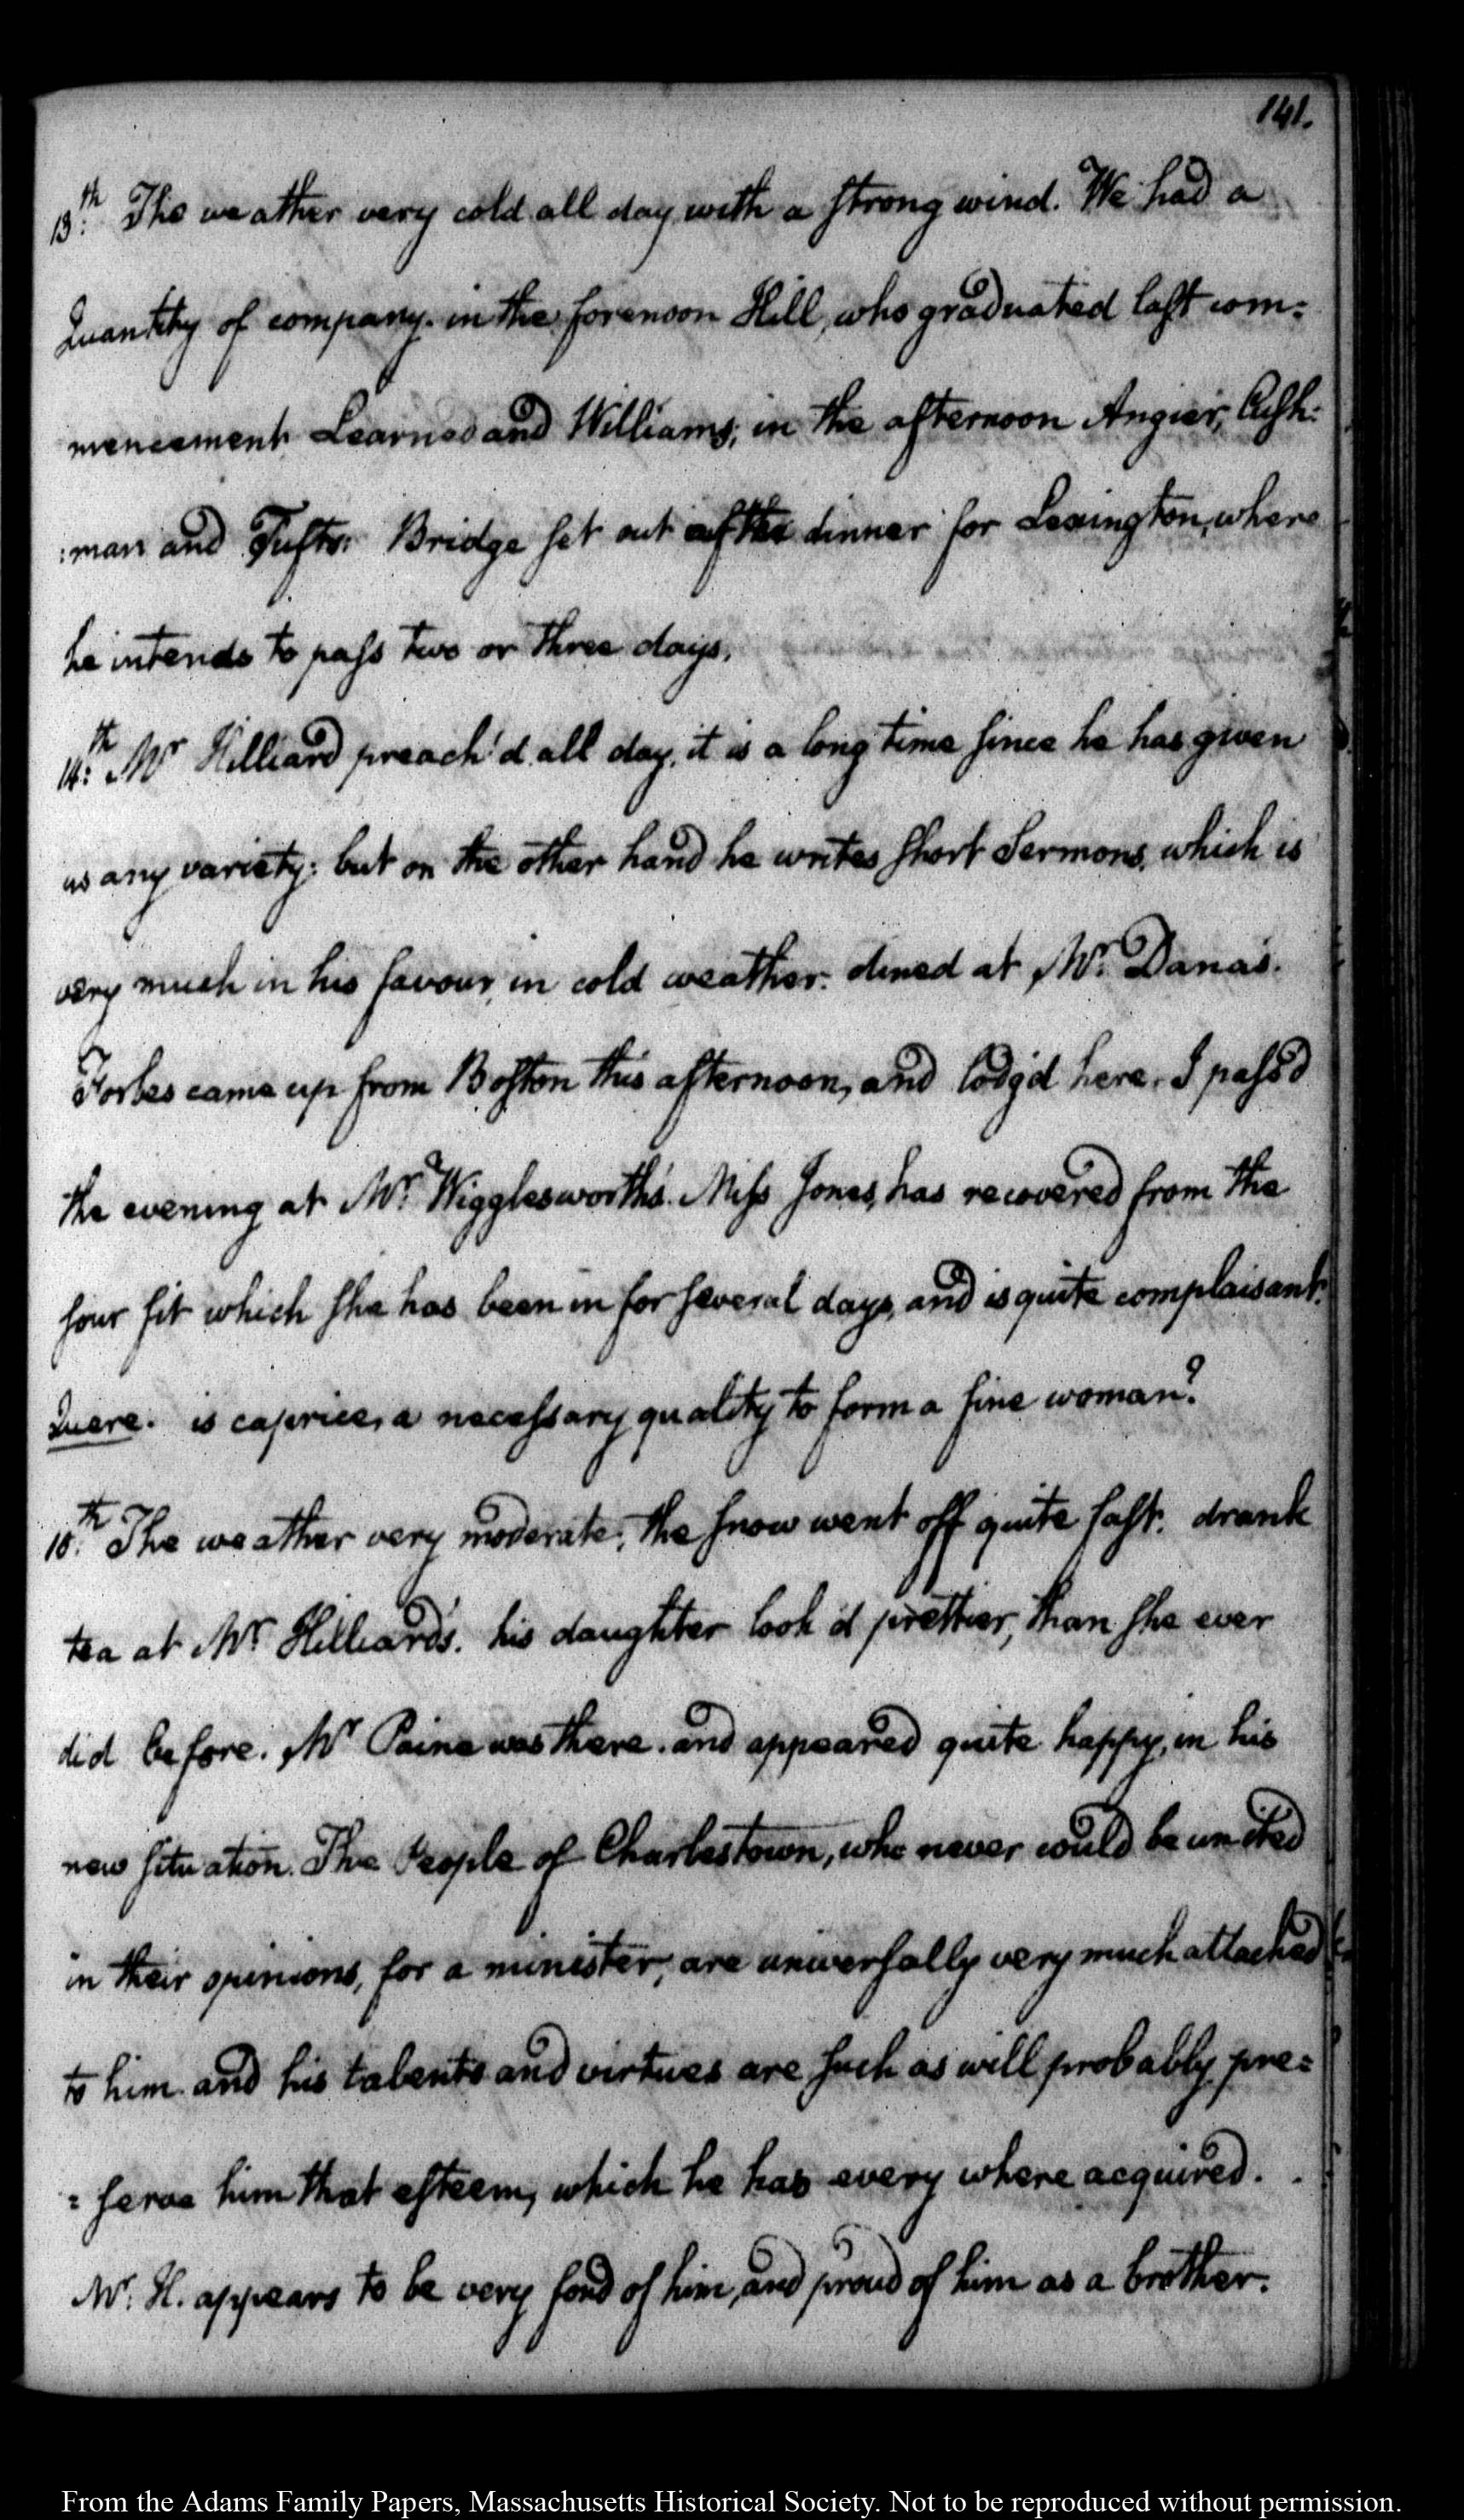 141.
13th: The weather very cold all day, with a strong wind. We had a
Quantity of company. in the forenoon Hill, who graduated last com-
mencement. Learned and Williams; in the afternoon Angier, Cush-
-man and Tufts. Bridge set out after dinner for Lexington, where
he intends to pass two or three days.
14th: Mr Hilliard preach'd all day, it is a long time since he has given
us any variety: but on the other hand he writes short Sermons, which is
very much in his favour, in cold weather. dined at Mr. Dana's.
Forbes came up from Boston this afternoon, and lodg'd here. I pass'd
the evening at Mr. Wigglesworth's. Miss Jones, has recovered from the
sour fit which she has been in for several days, and is quite complaisant.
Quere. is caprice, a necessary quality to form a fine woman?
15th: The weather very moderate; the snow went off quite fast. drank
tea at Mr Hilliard's. his daughter look'd prettier, than she ever
did before. Mr Paine was there. and appeared quite happy, in his
new situation. The People of Charlestown, who never could be united
in their opinions, for a minister, are universally very much attached
to him. and his talents and virtues are such as will probably pre-
-serve him that esteem, which he has every where acquired.
Mr. H. appears to be very fond of him, and proud of him as a brother.
From the Adams Family Papers, Massachusetts Historical Society. Not to be reproduced without permission.